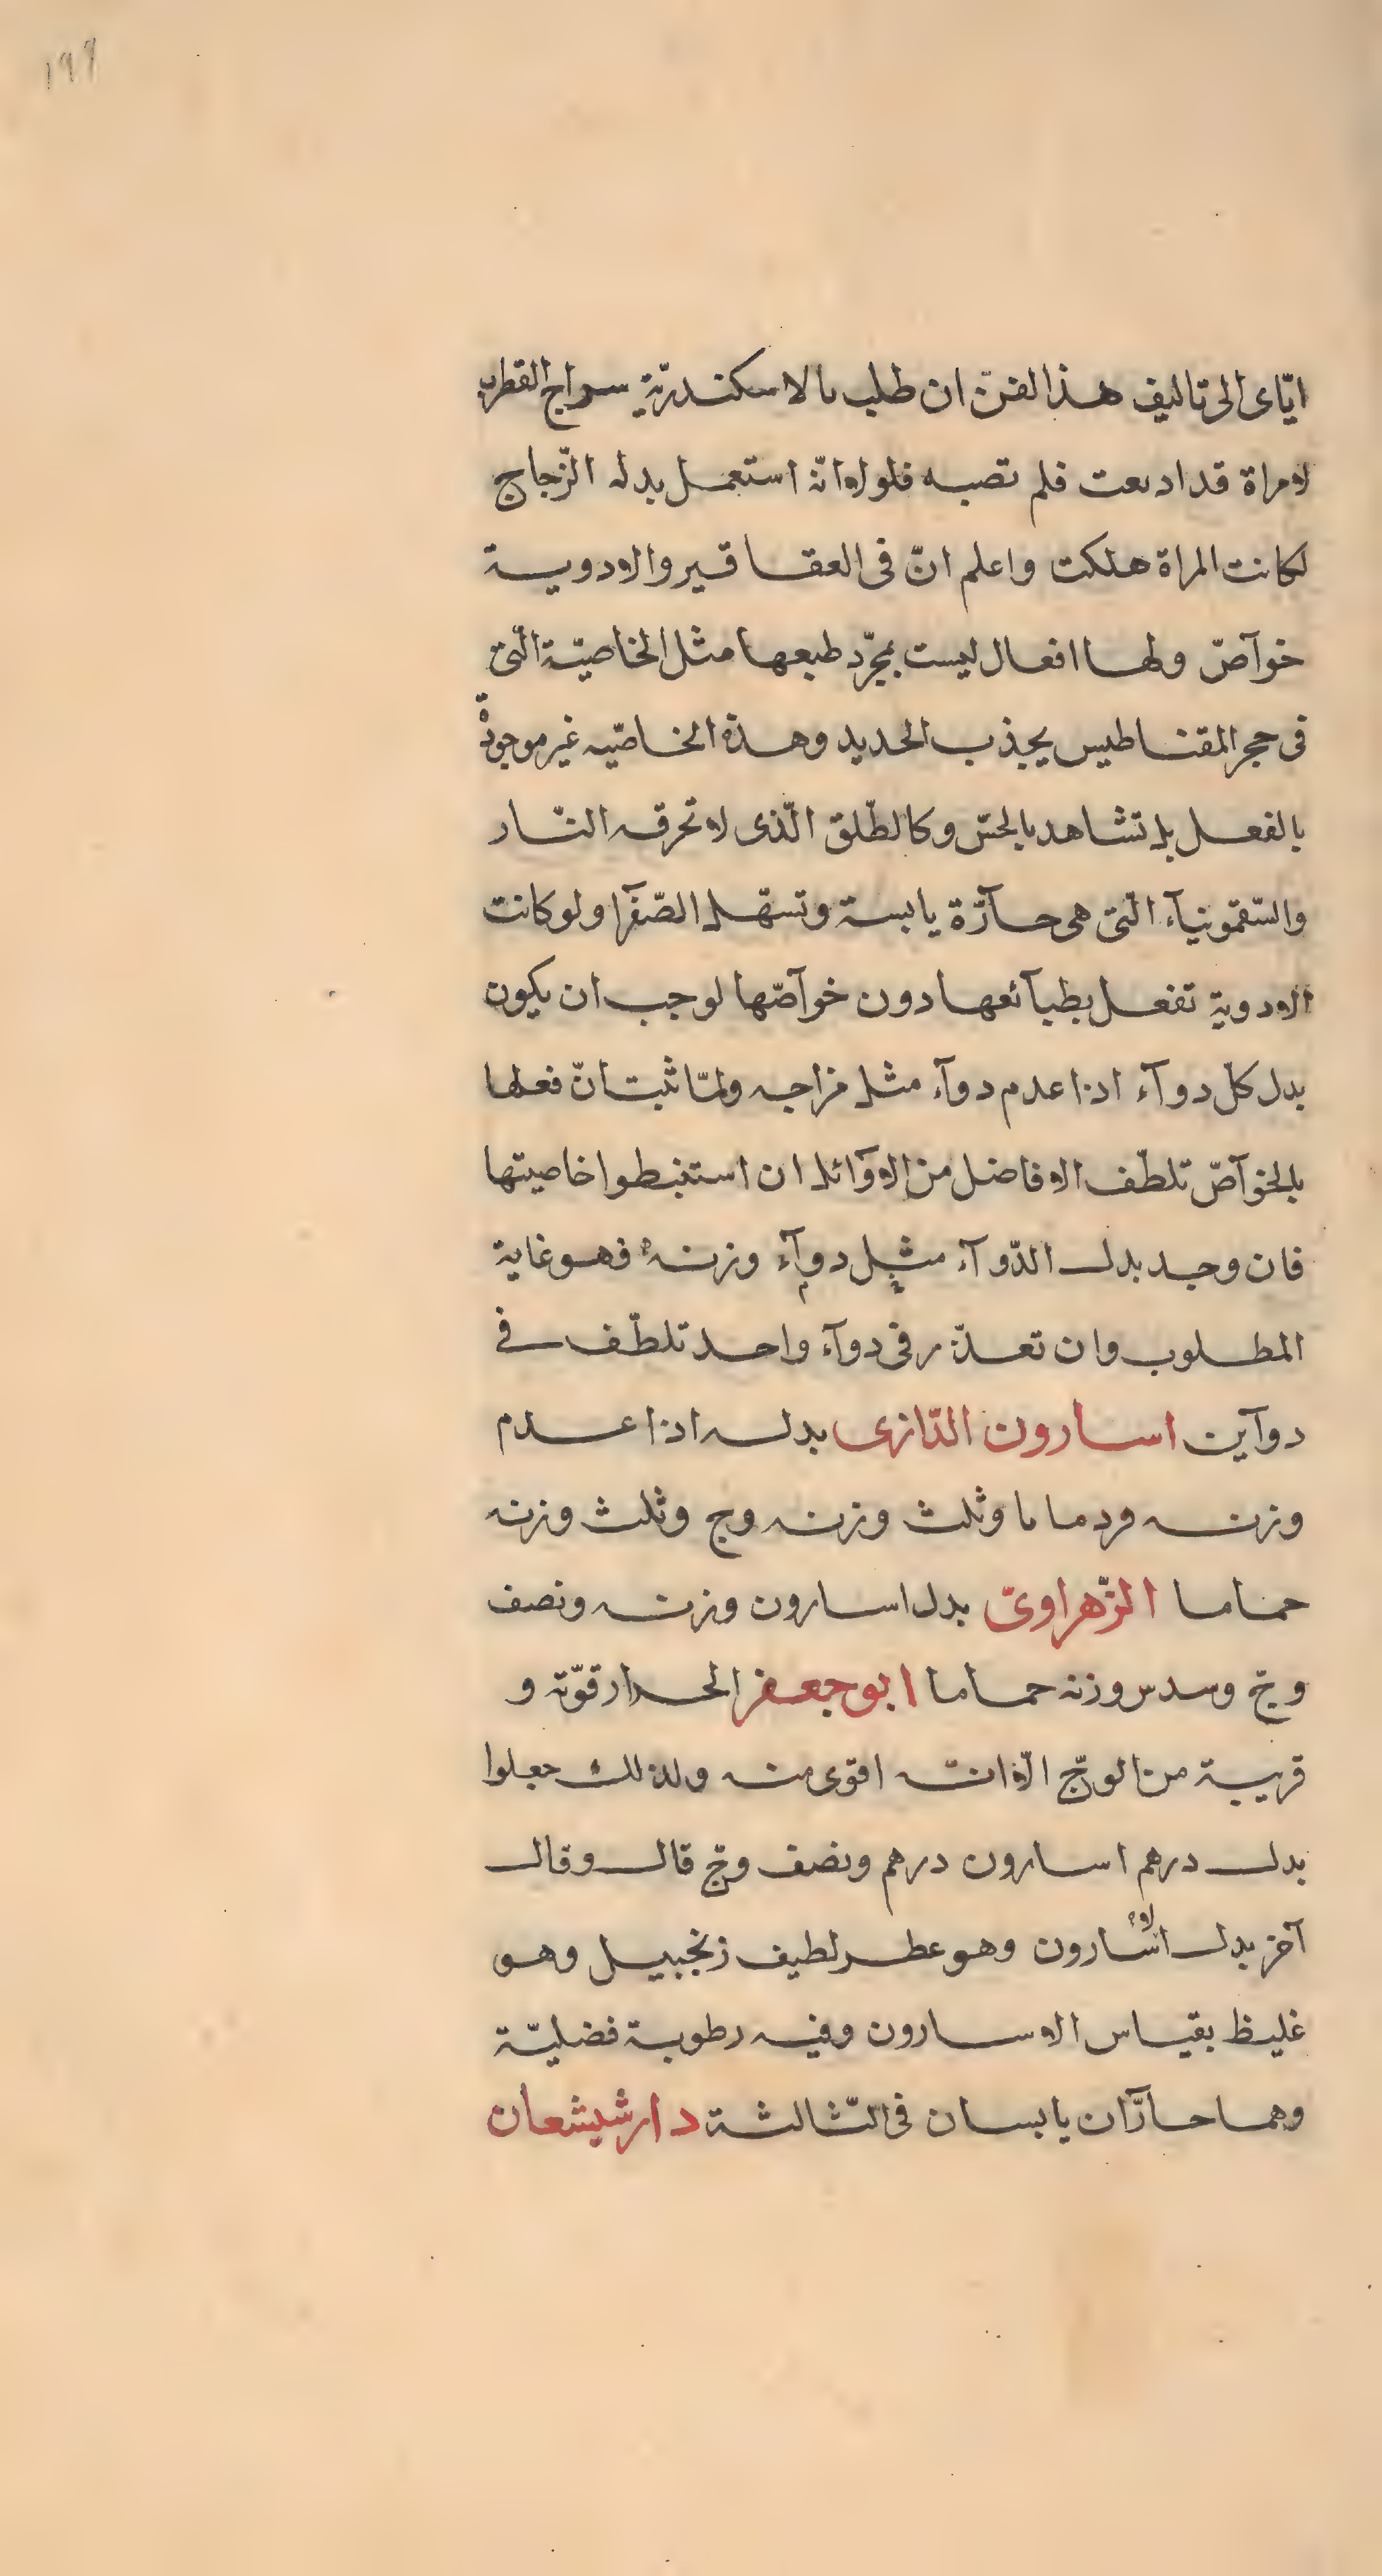 ١٩٩
ايّاى الى تاليف هذا الفنّ ان طلب بالاسكندريّة سراج القطرب
لامراة قد ادىعت فلم تصبه فلولا انّه استعمل بدله الزّجاج
لكانت المراة هلكت واعلم انّ فى العقاقير والادوية
خوآصّ ولها افعال ليست بمجرّد طبعها مثل الخاصيّة الّتى
فى حجر المقناطيس يجذب الحديد وهذه الخاصّيه غير موجودة
بالفعل بل تشاهد بالحسّ وكالطّلق الّذى لا تحرقه النّار
والسّقمونيآء الّتى هى حآرّة يابسة وتسهّل الصّفرآ ولو كانت
الادوية تفعل بطبآئعها دون خوآصّها لوجب ان يكون
بدل كلّ دوآء اذا عدم دوآء مثل مزاجه ولمّا ثبت انّ فعلها
بالخوآصّ تلطّف الافاضل من الاوآئل ان استنبطوا خاصيتها
فان وجد بدل الدّوآء مثل دوآء وزنه فهو غاية
المطلوب وان تعذّر فى دوآء واحد تلطّف فى
دوآين اسارون الرّازى بدله اذا عدم
وزنه وردماىا وثلث وزنه وج وثلث وزنه
حماما الزّهراوىّ بدل اسارون وزنه ونصف
وجّ وسدس وزنه حماما ابو جعفر الحدار قوّته و
قريبة من الوجّ الّا انّه اقوى منه ولذلك جعلوا
بدل درهم اسارون درهم ونصف وجّ قال وقال
آخر بدل الاسارون وهو عطر لطيف زنجبيل وهو
غليظ بقياس الاسارون وفيه رطوبة فضليّة
وهما حارّآن يابسان فى الثّالثة دارشيشعان